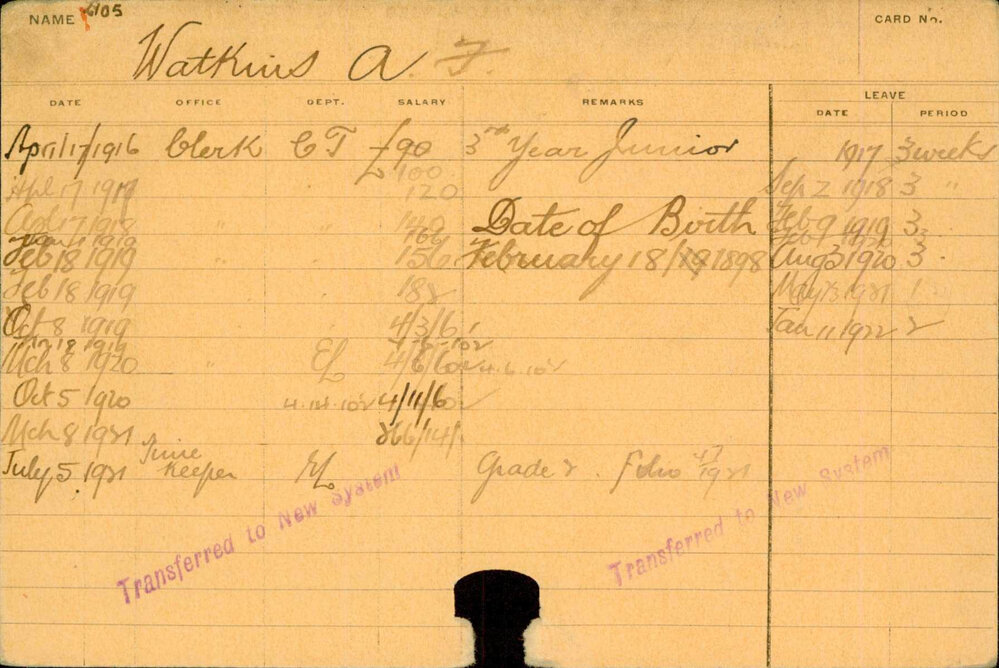 NAME 6105 CARD No.
Watkins A. F.
DATE OFFICE DEPT. SALARY REMARKS LEAVE
DATE PERIOD
April 17/1916 Clerk CT £90 3rd Year Junior 1917 3 weeks
100
Apl 17 1917 120 Sep 2 1918 3 "
April 17 1918 " " 140 Date of Birth Feb 9 1919 3
1919 160
Feb 18 1919 " " 156 February 18/1898 Aug 3 1920 3
Feb 18 1919 182 May 1921 1
Oct 8 1919 4/3/6 Jan 11 1922 2
Mch 8 1920 " EL 4/6/6 4.6.10½
Oct 5 1920 4.14.10½ 4/11/6
Mch 8 1921 266/14/
July 5 1921 Time Keeper EL Grade 2. Folio 47/1921
Transferred to New System
Transferred to New System